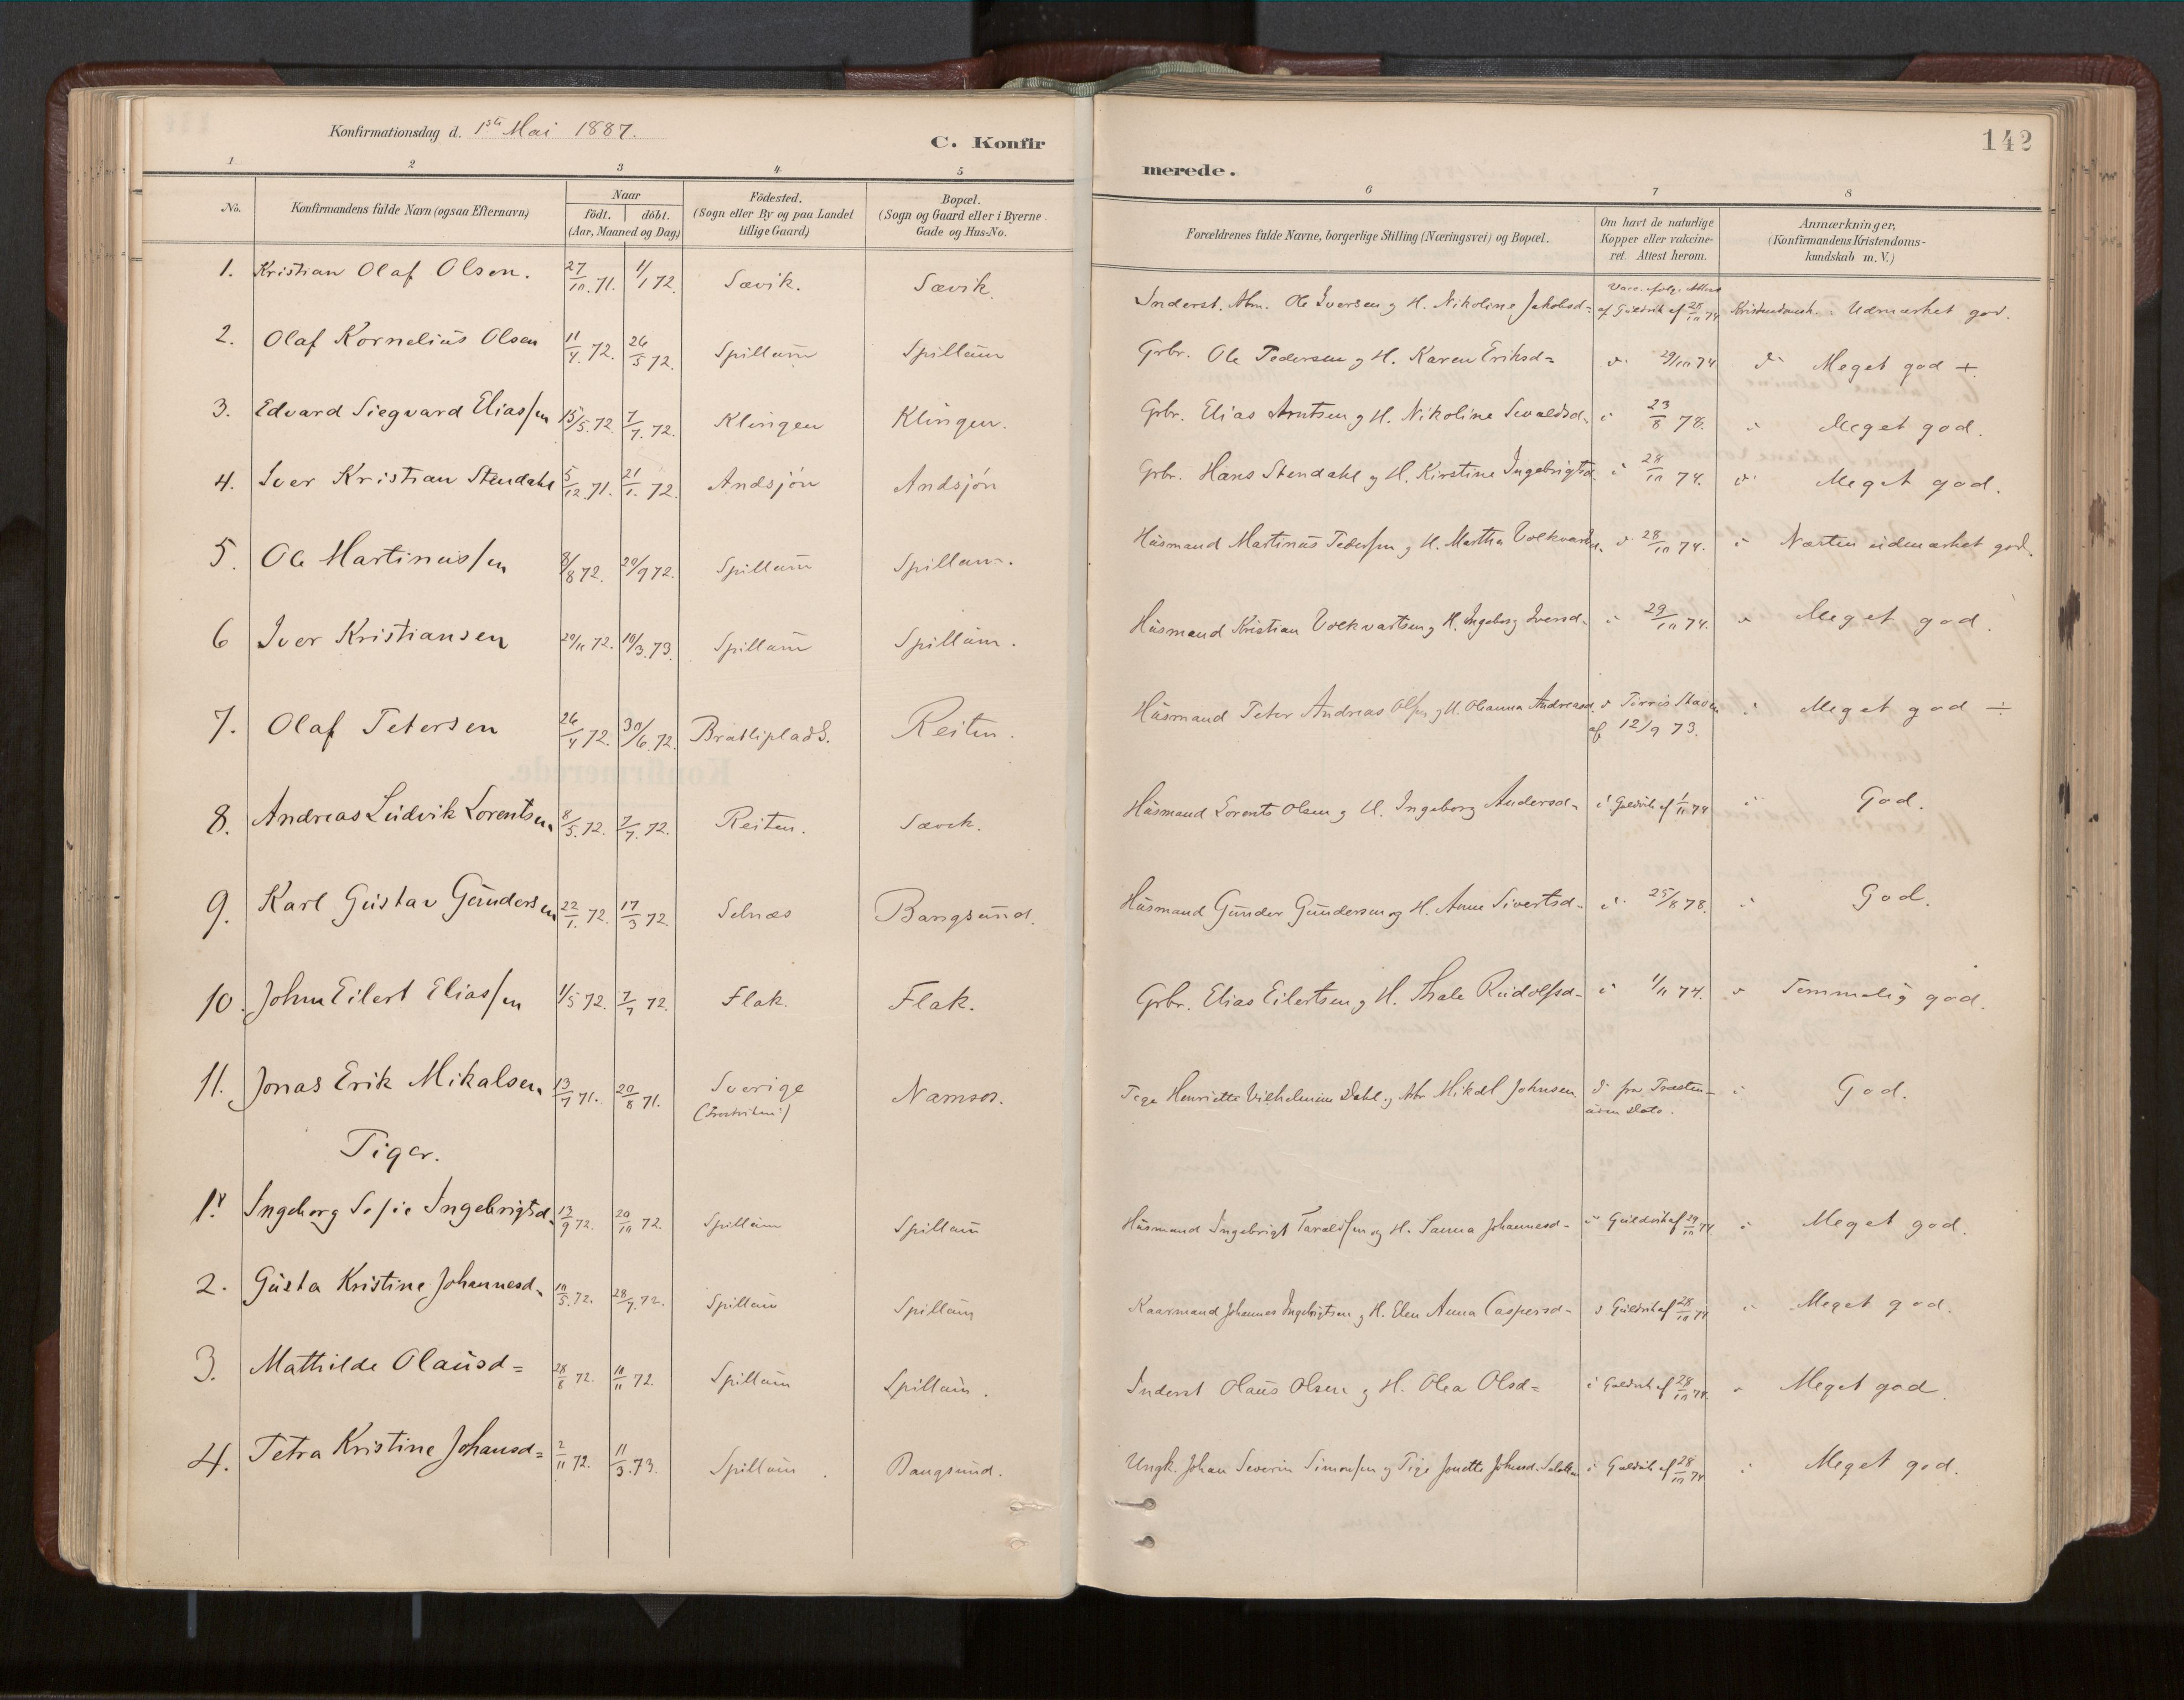 Konfirmationsdag d. 1ste Mai 1887.
C. Konfir
merede.
142
1 2 3 4 5 6 7 8
No. Konfirmandens fulde Navn (ogsaa Efternavn) Naar födt. döbt. (Aar, Maaned og Dag) Födested. (Sogn eller By og paa Landet tillige Gaard) Bopæl. (Sogn og Gaard eller i Byerne Gade og Hus-No. Forældrenes fulde Navne, borgerlige Stilling (Næringsvei) og Bopæl. Om havt de naturlige Kopper eller vakcineret. Attest herom. Anmærkninger, (Konfirmandens Kristendomskundskab m. V.)
1. Kristian Olaf Olsen. 27/10.71. 1/1 72. Sævik. Sævik. Inderst. Abm. Ole Iversen og H. Nikoline Jakobsd= af Guldvik af 28/10 74 Kristendomsk.: Udmærket god.
2. Olaf Kornelius Olsen 11/4. 72. 26/5 72. Spillum Spillum Grbr. Ole Pedersen og H. Karen Eriksd= 29/10 74 Meget god +.
3. Edvard Siegvard Eliassen 15/5.72. 7/7. 72. Klingen Klingen. Grbr. Elias Arntsen og H. Nikoline Sevaldsd= 23/8 78. Meget god.
4. Iver Kristian Stendahl 5/12.71. 21/1. 72. Andsjön Andsjön Grbr. Hans Stendahl og H. Kirstine Ingebrigtsd. 28/10 74. Meget god.
5. Ole Martinussen 8/8 72. 20/9 72. Spillum Spillum. Husmand Martinus Pedersen og H. Martha Volkvartsd. 28/10 74. Næsten udmærket god.
6 Iver Kristiansen 20/11 72. 10/3.73. Spillum Spillum. Husmand Kristian Volkvartsen og H. Ingeborg Iversd. 29/10 74. Meget god.
7. Olaf Petersen 26/4 72. 30/6.72. Bratliplads. Reiten. Husmand Peter Andreas Olsen og H. Oleanna Andreasd. af 12/9 73. Meget god ÷
8. Andreas Ludvik Lorentsen 8/5.72. 7/7. 72. Reiten. Sævik. Husmand Lorents Olsen og H. Ingeborg Andersd= Guldvik af 1/11 74 God.
9. Karl Gustav Gundersen 22/1. 72. 17/3 72. Selnæs Bangsund. Husmand Gunder Gundersen og H. Anne Sivertsd= 25/8 78. God.
10. Johan Eilert Eliassen 1/5 72. 7/7 72. Flak. Flak. Grbr. Elias Eilertsen og H. Thale Rudolfsd= 1/11 74. Temmelig god.
11. Jonas Erik Mikalsen 13/7 71. 20/8 71. Sverige Namsos. Pige Henriette Vilhelmine Dahl og Abr Mikal Johnsen. fra Præsten uden Dato. God.
Piger.
1. Ingeborg Sofie Ingebrigtsd. 13/9 72. 20/10 72. Spillum Spillum Husmand Ingebrigt Taraldsen og H. Sanna Johannesd= Guldvik af 29/10 74. Meget god.
2. Gusta Kristine Johannesd= 10/5.72. 28/7.72. Spillum Spillum Kaarmand Johannes Ingebrigtsen og H. Elen Anna Caspersd= Guldvik af 28/10 74 Meget god.
3. Mathilde Olausd= 28/8 72. 10/11 72. Spillum Spillum. Inderst Olaus Olsen og H. Olea Olsd= Guldvik af 28/10 74. Meget god.
4. Petra Kristine Johansd= 2/11 72. 11/3.73. Spillum. Bangsund. Ungk. Johan Severin Simonsen og Pige Jonette Johnsd. Guldvik af 28/10 74 Meget god.